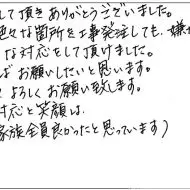 して頂きありがとうございました。
色々な箇所を工事発注しても、嫌
な対応をして頂けました。
ばお願いしたいと思います。
よろしくお願い致します。
対応と笑顔は、
家族全員良かったと思っています)